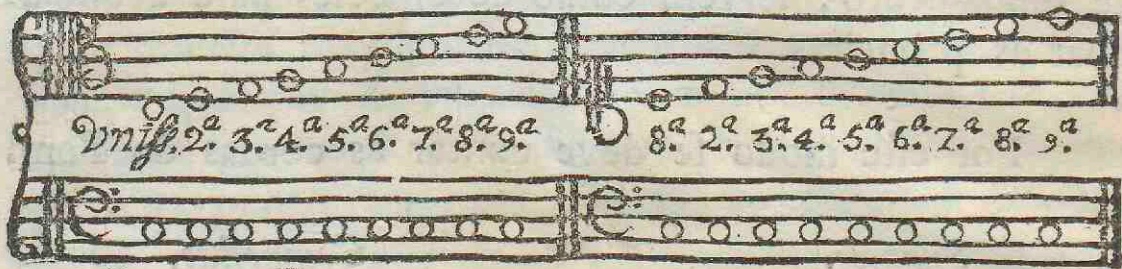 Vniss. 2.ª 3.ª 4.ª 5.ª 6.ª 7.ª 8.ª 9.ª 8.ª 2.ª 3.ª 4.ª 5.ª 6.ª 7.ª 8.ª 9.ª